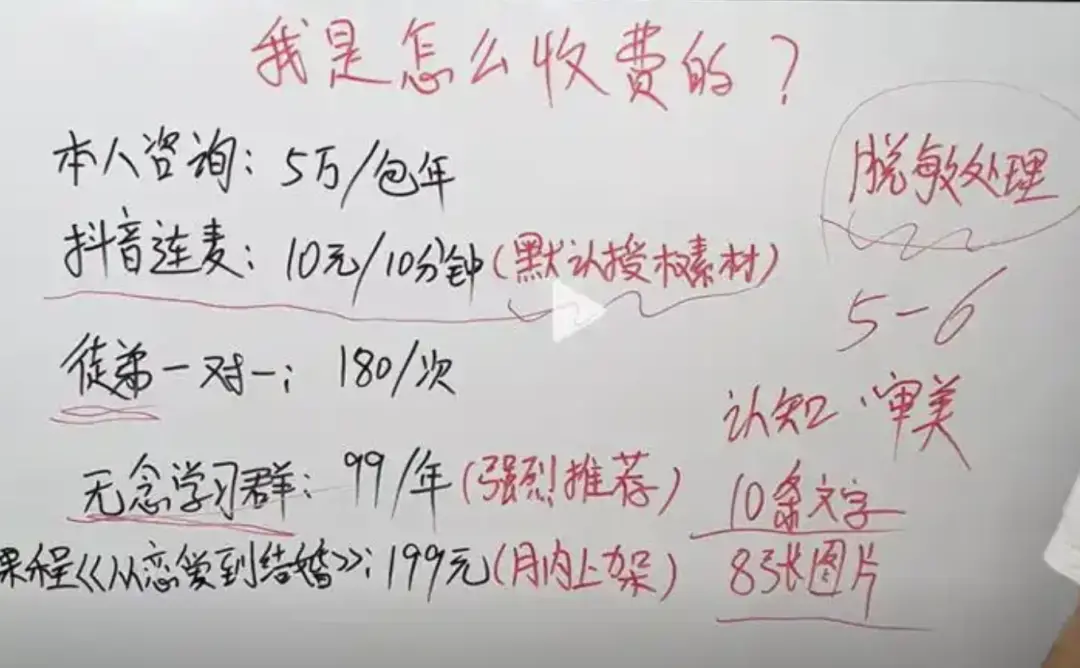 我是怎么收费的？
本人咨询：5万/包年
抖音连麦：10元/10分钟(默认授权素材)
徒弟一对一：180/次
无念学习群：99/年(强烈推荐)
课程《从恋爱到结婚》：199元(月内上架)
脱敏处理
5-6
认知·审美
10条文字
83张图片